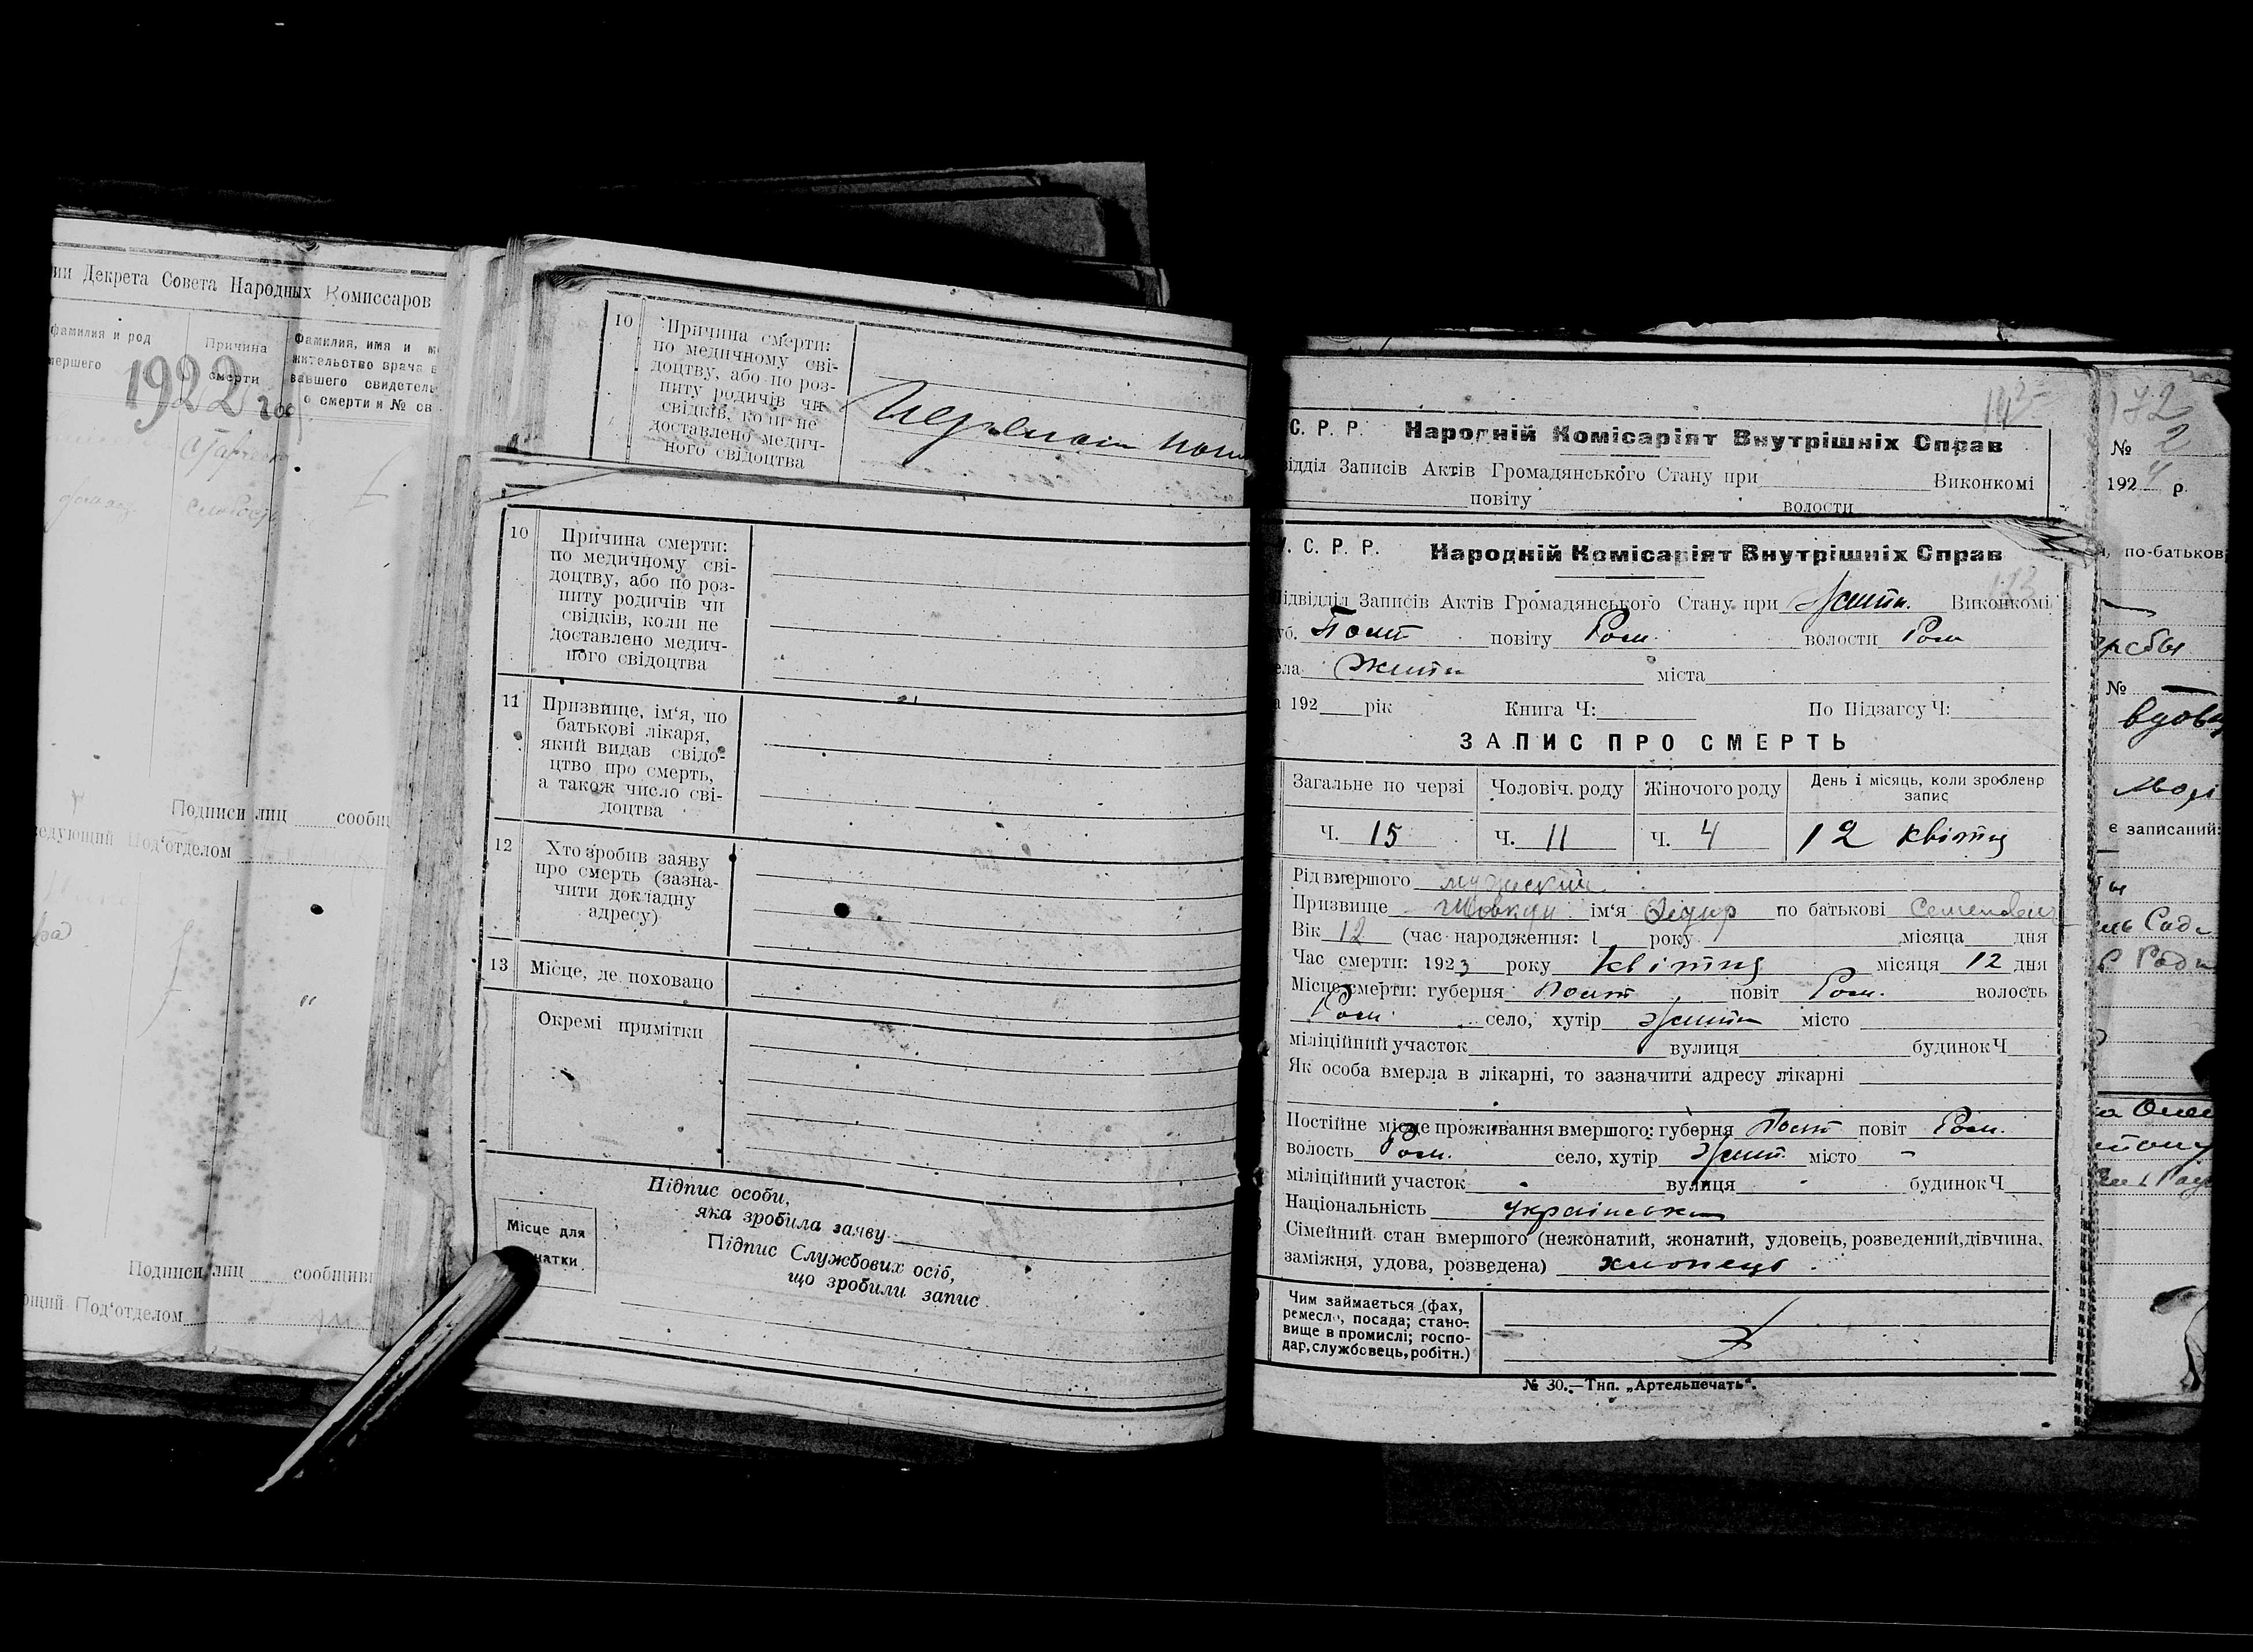 ии Декрета Совета Народных Комиссаров
фамилия и род
мершего
Причина
смерти
Фамилия, имя и м
жительство врача в
вавшего свидетель
о смерти и № св
1922 год
Подписи лиц сообщ
едующий Под'отделом
Подписи лиц сообщивш
ющий Под'отделом
10 Причина смерти:
по медичному сві-
доцтву, або по роз-
питу родичів чи
свідків, коли не
доставлено медич-
ного свідоцтва
10 Причина смерти:
по медичному сві-
доцтву, або по роз-
питу родичів чи
свідків, коли не
доставлено медич-
ного свідоцтва
11 Призвище, ім'я, по
батькові лікаря,
який видав свідо-
цтво про смерть,
а також число сві-
доцтва
12 Хто зробив заяву
про смерть (зазна-
чити докладну
адресу)
13 Місце, де поховано
Окремі примітки
Підпис особи,
яка зробила заяву
Місце для
чатки
Підпис Службових осіб,
що зробили запис
С. Р. Р. Народній Комісаріят Внутрішніх Справ
відділ Записів Актів Громадянського Стану при Виконкомі
повіту волости
У. С. Р. Р. Народній Комісаріят Внутрішніх Справ
Підвідділ Записів Актів Громадянського Стану при Виконкомі
уб. Полт повіту Ром. волости Ром
ела Житн міста
а 192 рік Книга Ч: По Підзагсу Ч:
ЗАПИС ПРО СМЕРТЬ
Загальне по черзі Чоловіч. роду Жіночого роду День і місяць, коли зроблено
запис
Ч. 15 Ч. 11 Ч. 4 12 квітня
Рід вмершого мужеский
Призвище Шовкун ім'я Федир по батькові Семенович
Вік 12 (час народження: 1 року місяца дня
Час смерти: 1923 року квітня місяця 12 дня
Місце смерти: губерня Полт повіт Ром. волость
Ром. село, хутір Житн місто
міліційний участок вулиця будинок Ч
Як особа вмерла в лікарні, то зазначити адресу лікарні
Постійне місце проживання вмершого: губерня Полт повіт Ром.
волость Ром. село, хутір Житн. місто -
міліційний участок вулиця будинок Ч
Національність
Сімейний стан вмершого (нежонатий, жонатий, удовець, розведений, дівчина,
заміжня, удова, розведена) хлопець
Чим займається (фах,
ремесло, посада; стано-
вище в промислі; госпо-
дар, службовець, робітн.)
№ 30.—Тип. „Артельпечать".
172
№ 2
1924 р.
по-батькові
№
є записаний: